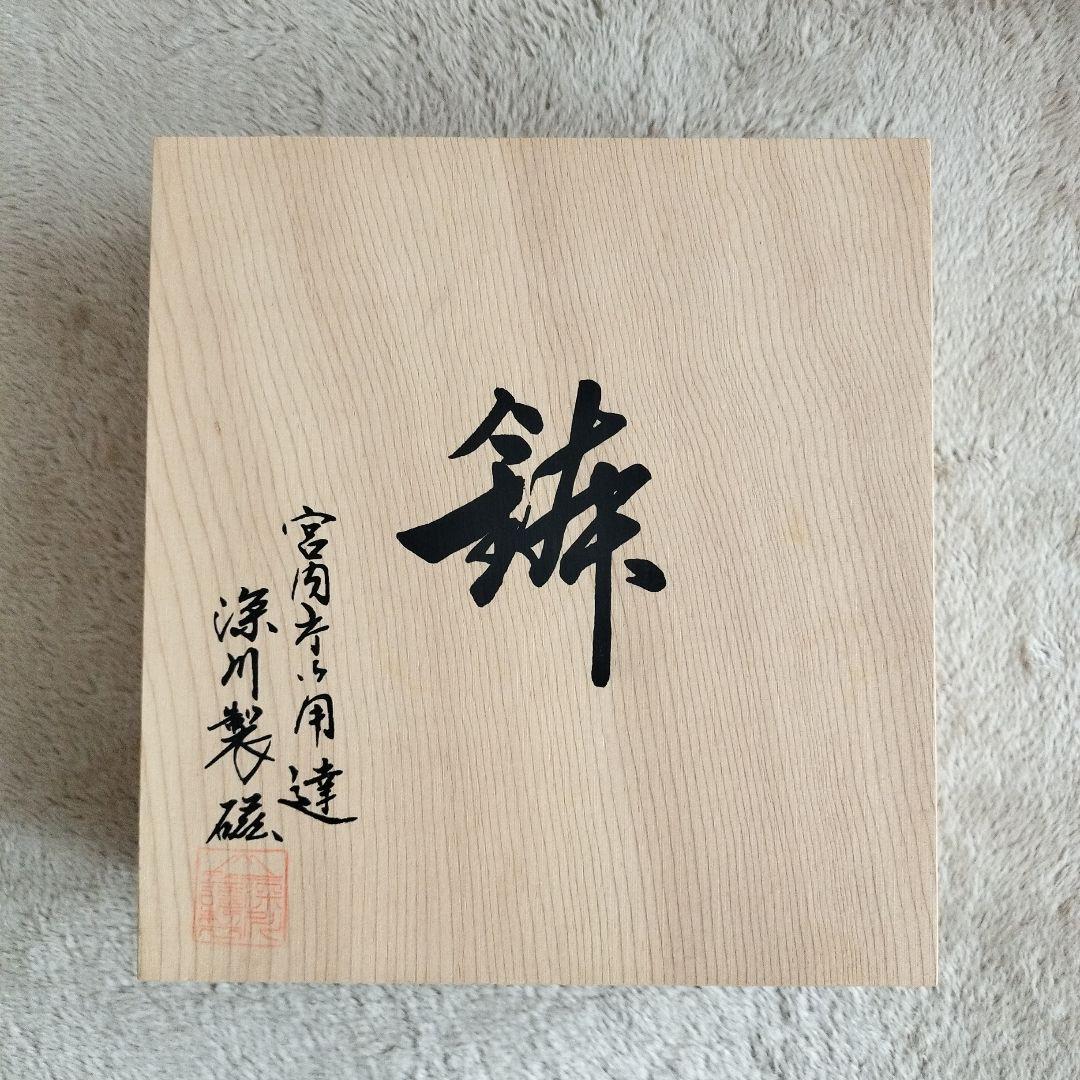 鉢
宮内庁御用達
深川製磁